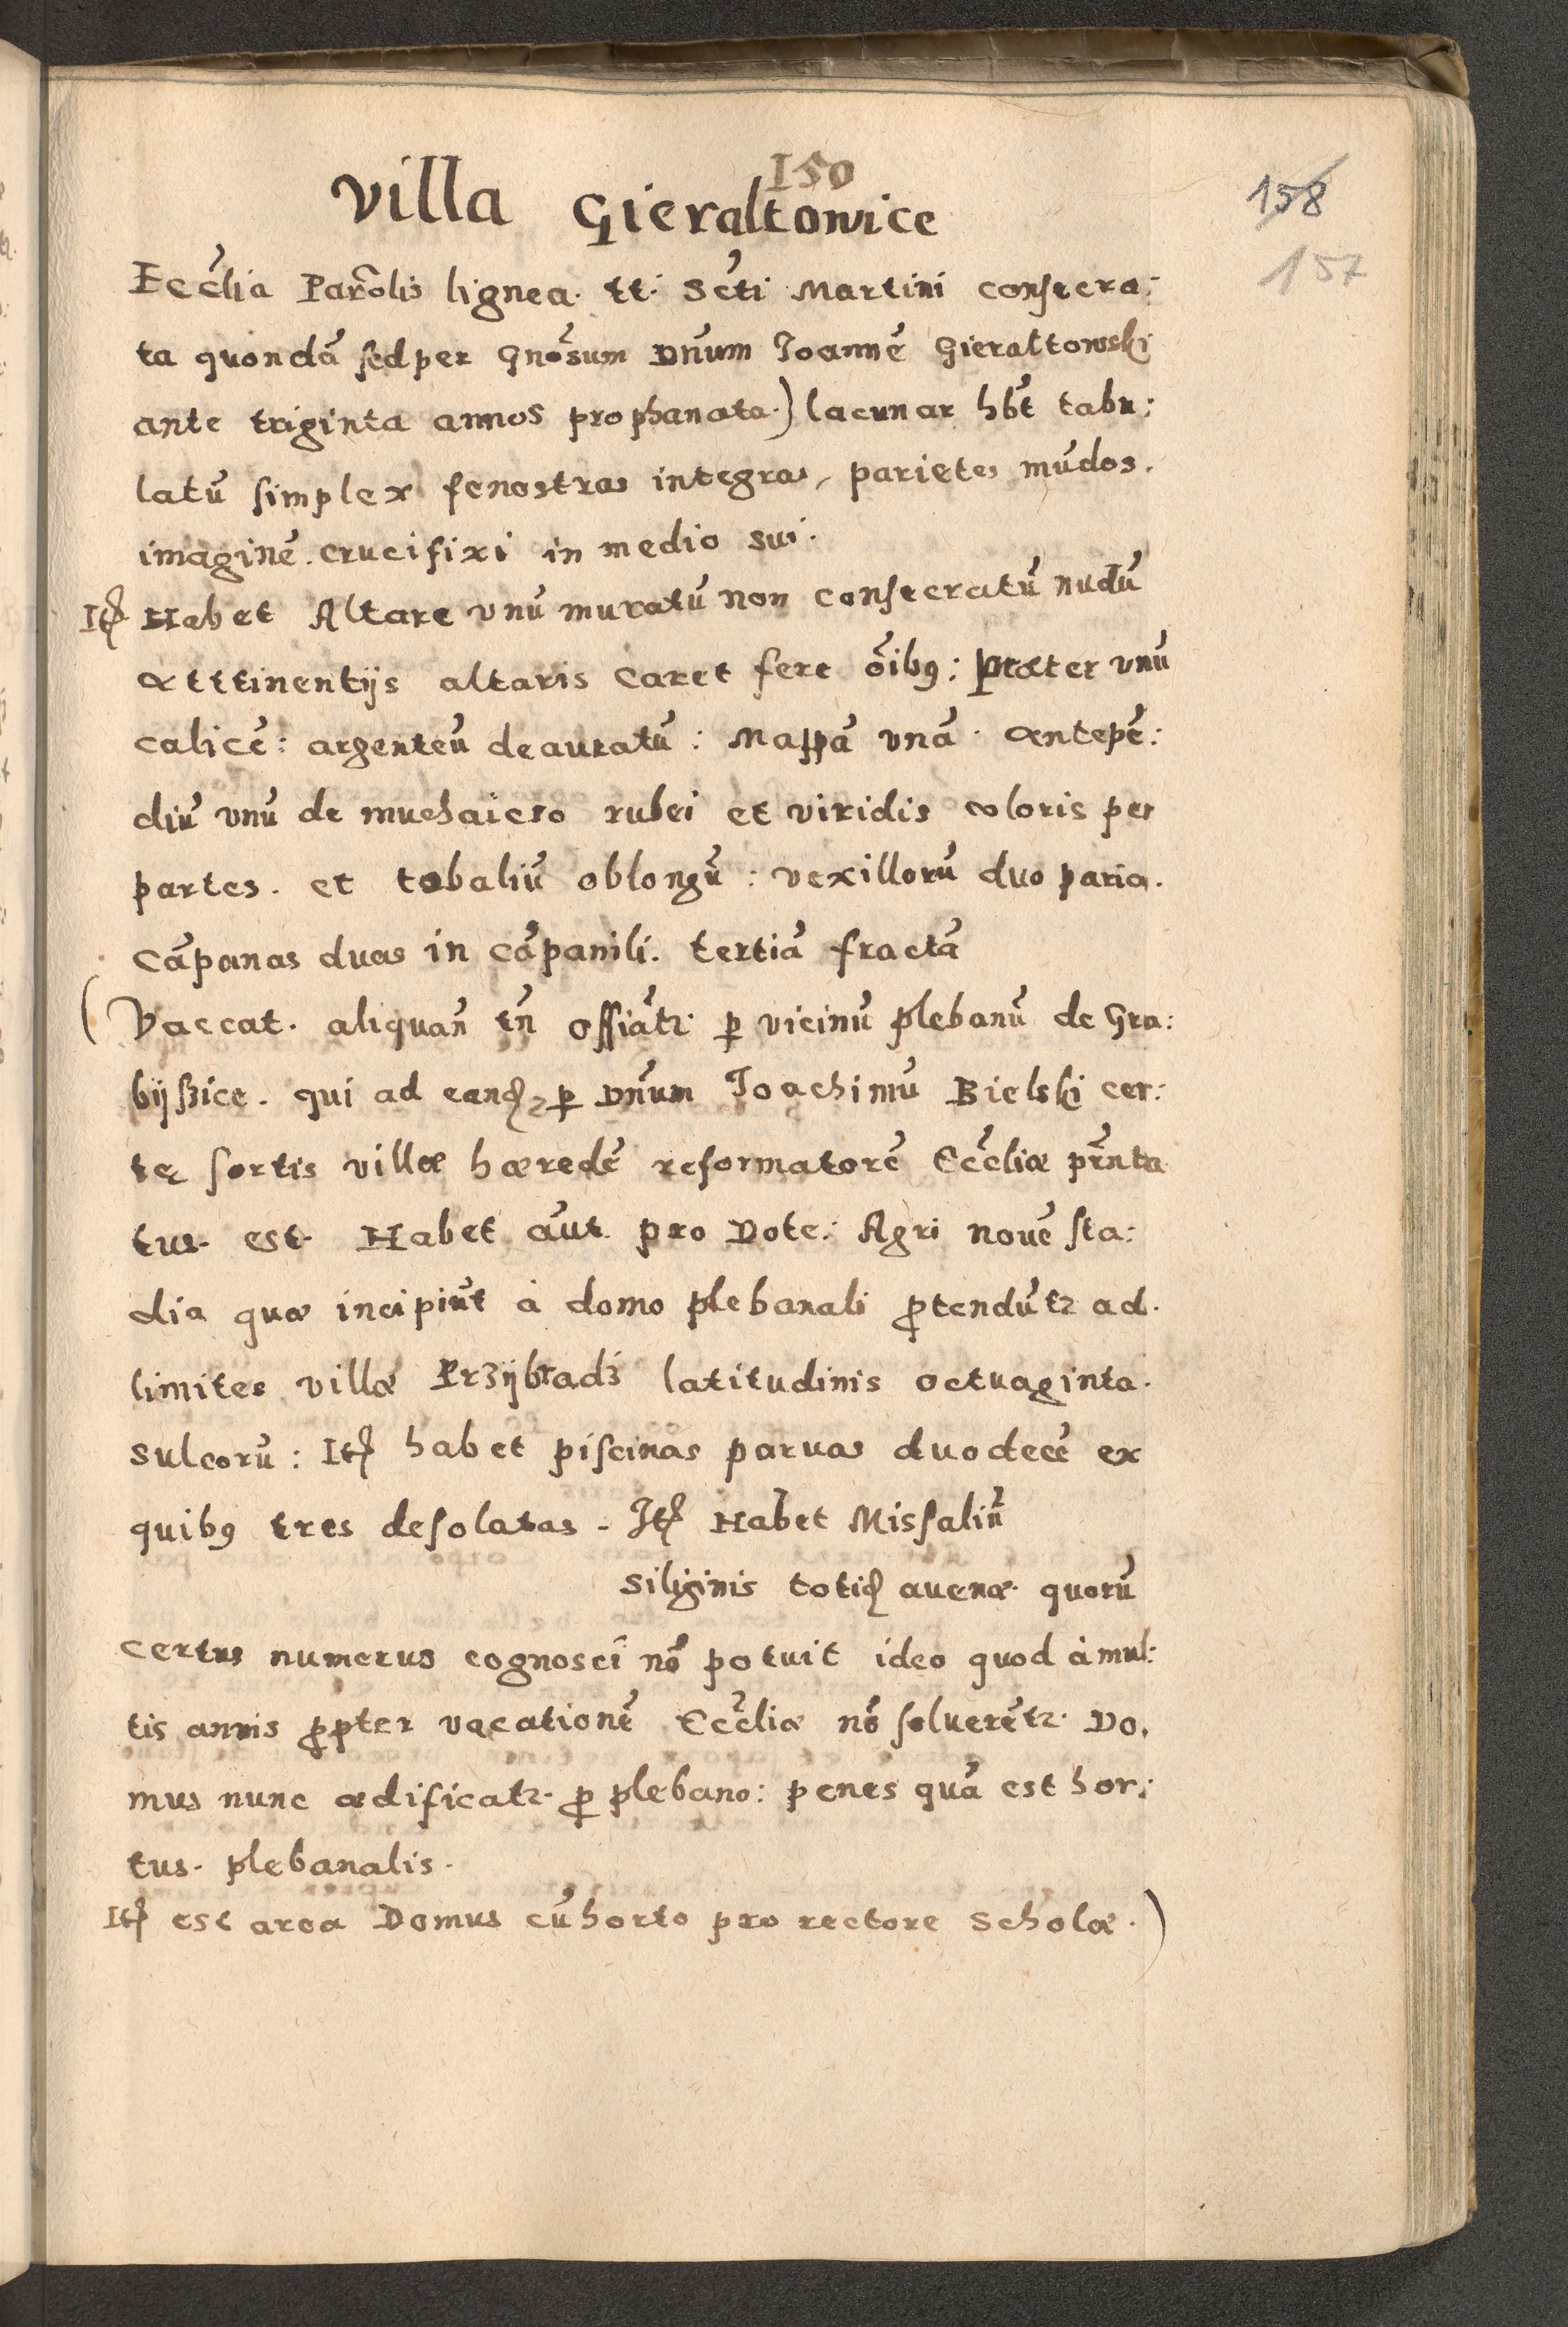 150
158
157
Villa Gieraltowice
Eccłia Parōlis lignea. tt. Scti Martini consecra:
ta quondā sed per Gnōsum Dn̄um Joannē Gieraltowski
ante triginta annos prophanata.) lacunar hb̄t tabu:
latū simplex fenestras integras, parietes mūdos.
imaginē. crucifixi in medio sui.
Itē Habet Altare vnū muratū non consecratū nudū
attinentijs altaris caret fere ōibꝰ: præter vnū
calicē: argenteū deauratū: Mappā vnā. antepē:
diū vnū de muchaiero rubei et viridis coloris per
partes. et tobaliū oblongū: vexillorū duo paria.
Cāpanas duas in cāpanili. tertiā fractā
(Vaccat. aliquan̄ tn̄ offiātr. ꝑ vicinū plebanū de Gra:
bijßice. qui ad eandē ꝑ Dn̄um Joachimū Bielski cer:
tę sortis villæ hæredē reformatorē Eccłiæ prn̄ta
tus. est. Habet aūt. pro Dote: Agri nouē sta:
dia quæ incipiūt à domo plebanali ꝓtendūtr ad.
limites villæ Przijbradź latitudinis octuaginta.
sulcorū: Itē habet piscinas paruas duodecē ex
quibꝰ tres desolatas - Itē Habet Missaliū
siliginis totidē auenæ. quorū
certus numerus cognosci nō potuit ideo quod à mul:
tis annis ꝓpter vacationē Eccłiæ nō soluerētr. Do.
mus nunc ædificatr. ꝓ plebano: penes quā est hor:
tus. plebanalis.
Itē est area Domus cū horto pro rectore scholæ.)